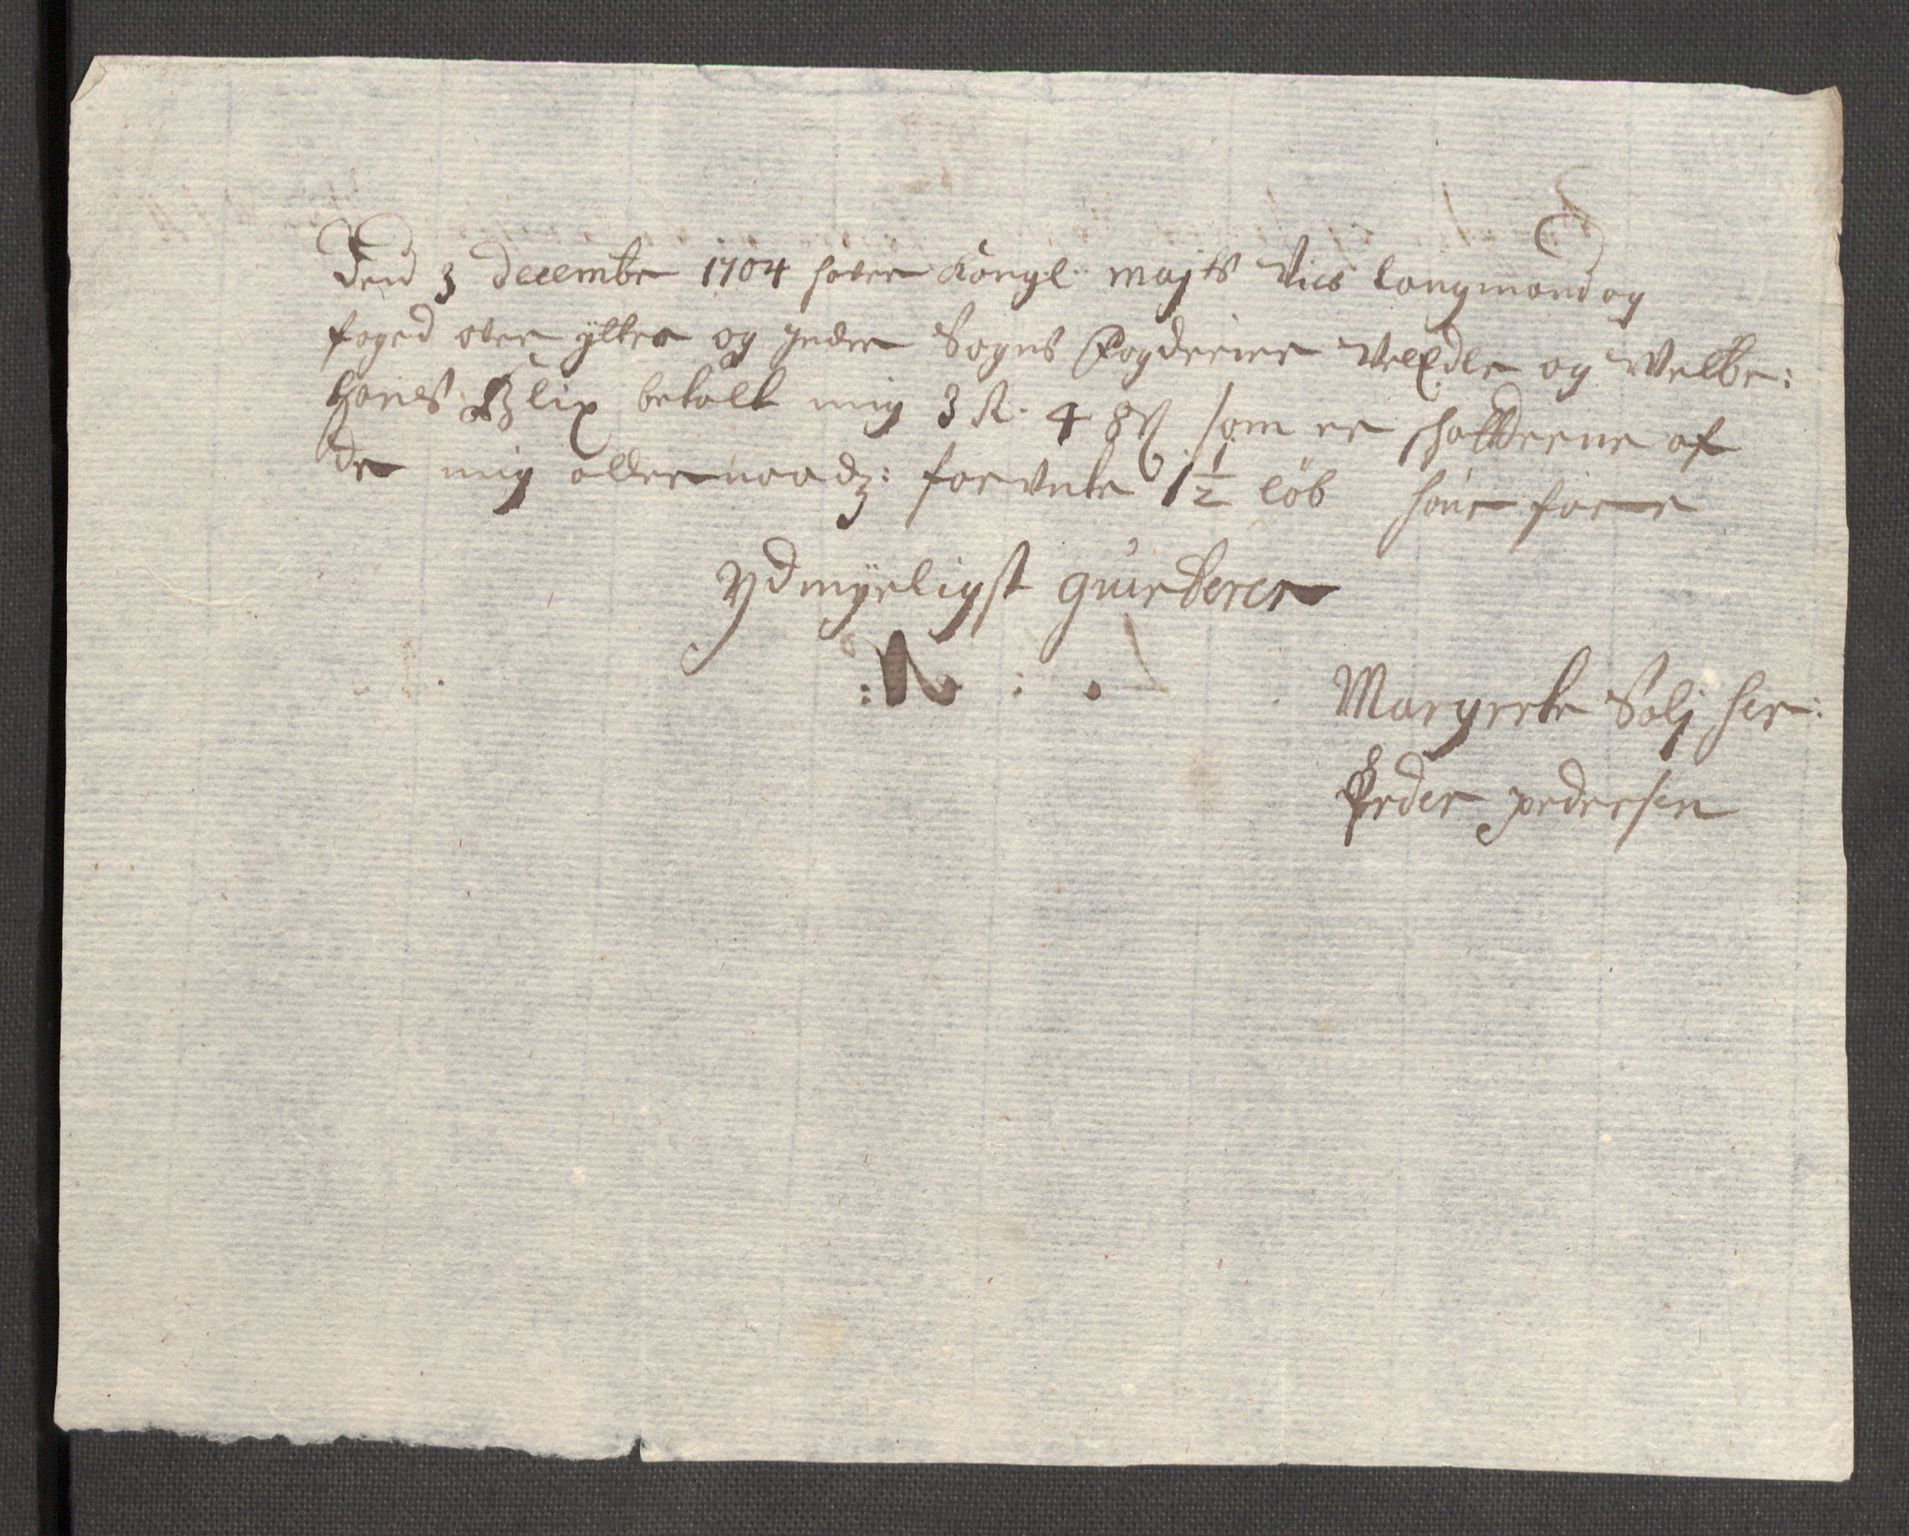 Den 3 december 1704 hafver Kongl. Mayts Vice laugmand og
foged ofver yttre og Indre Sogns Fogderier Velædle og Welbr:
Hanes Blix betalt mig 3 R. 4 som er schatterne af
de mig allernaadg: forunte 1½ löb hvor fore
ydmygeligst qvirterer
Margrete Salj her:
Peder pedersen